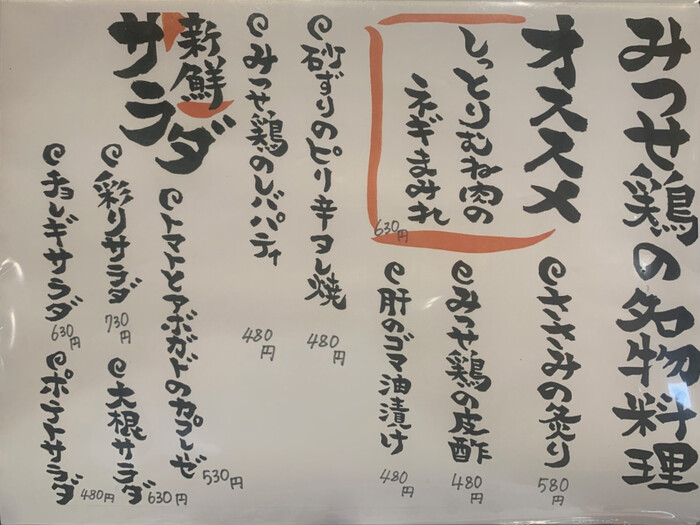 みつせ鶏の名物料理
オススメ
しっとりむね肉の
ネギまみれ
630円
ささみの炙り
580円
みつせ鶏の皮酢
480円
肝のゴマ油漬け
480円
砂ずりのピリ辛タレ焼
480円
みつせ鶏のレバパティ
480円
新鮮
サラダ
トマトとアボガドのカプレーゼ
530円
彩りサラダ
730円
大根サラダ
630円
チョレギサラダ
630円
ポテトサラダ
480円